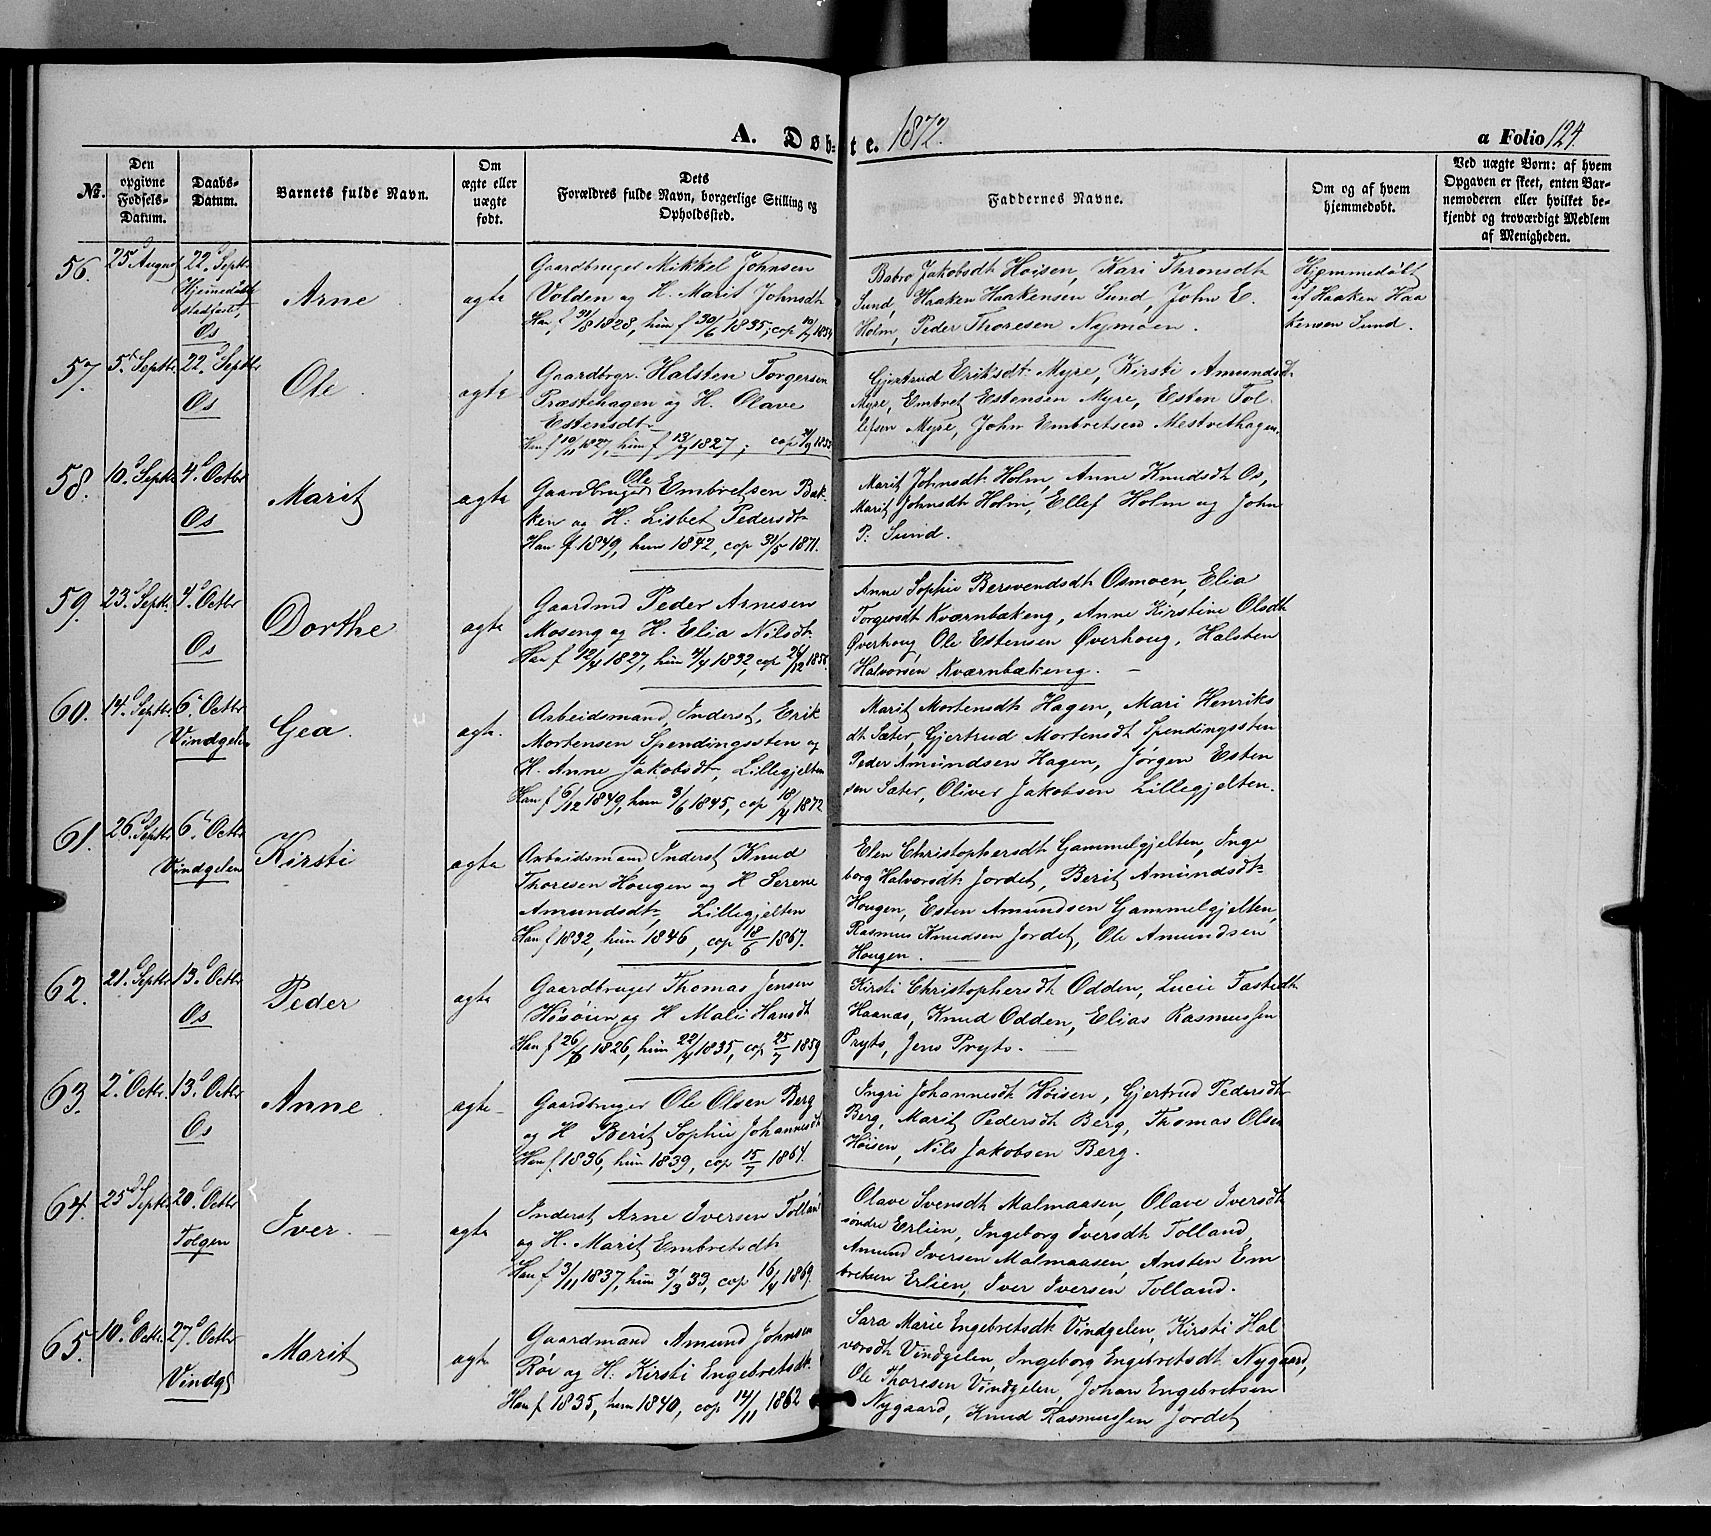 A. Døb- te. 1872. a Folio 124.
No.
Den opgivne Fødsels-Datum.
Daabs-Datum.
Barnets fulde Navn.
Om ægte eller uægte født.
Dets Forældres fulde Navn, borgerlige Stilling og Opholdssted.
Faddernes Navne.
Om og af hvem hjemmedøbt.
Ved uægte Børn: af hvem Opgaven er skeet, enten Barnemoderen eller hvilket bekjendt og troværdigt Medlem af Menigheden.
56. 25d August 22d Septbr Hjemmedøbt stadfæst, Os
Arne
ægte
Gaardbruger Mikkel Johnsen
Volden og H. Marit Johnsdtr
Han f 31/8 1828, hun f 30/6 1835, cop
Babro Jakobsdtr Hoisen, Kari Thronsdtr
Sund, Haaken Haakensen Sund, John E.
Holm, Peder Thoresen Nymoen.
Hjemmedøbt
af Haaken Haa
kensen Sund.
57. 5d Septbr 22d Septbr Os
Ole
ægte
Gaardbrgr. Halsten Torgersen
Træstehagen og H. Olave
Estensdtr
Han f 10/11 1827, hun f 13/2 1827; cop
Gjertrud Eriksdtr Myre, Kirsti Amundsd
Myre, Embret Estensen Myre, Esten Tol
lefsen Myre, John Embretsen Mestvethagen
58. 10d Septbr 4d Octbr Os
Marit
ægte
Gaardbruger Ole Embretsen Bak-
ken og H: Lisbet Pedersdtr
Han f 1849, hun 1842, cop 31/5 1871.
Marit Johnsdtr Holm, Anne Knudsdtr Os,
Marit Johnsdtr Holm, Ellef Holm og John
P. Sund.
59. 23d Septbr 4d Octbr Os
Dorthe
ægte
Gaardmd Peder Arnesen
Moseng og H. Elia Nilsdtr
Han f 12/4 1827, hun 4/4 1832, cop 26/12 1858
Anne Sophie Berwendsdtr Osmoen, Elia
Torgersdt Kværnbækeng, Anne Kirstine Olsdtr
Øverhoug, Ole Estensen Øverhoug, Halsten
Halvorsen Kværnbækeng.
60. 14d Septbr 6d Octbr Vindgelen
Gea.
ægte.
Arbeidsmand, Inderst, Erik
Mortensen Spendingssten og
H. Anne Jakobsdtr, Lillegjelten
Han f 6/12 1849, hun 3/6 1845, cop 18/4 1872
Marit Mortensdtr Hagen, Mari Henriks
dt Sæter, Gjertrud Mortensdt Spendingssten
Peder Amundsen Hagen, Jørgen Esten
sen Sæter, Oliver Jakobsen Lillegjelten.
61. 26d Septbr. 6d Octbr Vindgelen
Kirsti
ægte
Arbeidsmand Inderst Knud
Thoresen Hougen og H Serene
Amundsdtr, Lillegjelten
Han f 1832, hun 1846, cop 18/6 1867.
Elen Christophersdt Gammelgjelten, Inge
borg Halvorsdtr Jordet, Berit Amundsdtr
Hougen, Esten Amundsen Gammelgjelten,
Rasmus Knudsen Jordet, Ole Amundsen
Hougen.
62. 21d Septbr 13d Octbr Os
Peder
ægte
Gaardbruger Thomas Jensen
Høsøien og H Mali Hansdt
Han f 26/6 1826, hun 22/4 1835, cop 25/7 1859
Kirsti Christophersdt Odden, Lucie Fastedtr
Haanæs, Knud Odden, Elias Rasmussen
Pryts, Jens Pryts.
63. 2d Octbr. 13d Octbr Os
Anne
ægte
Gaardbruger Ole Olsen Berg
og H Berit Sophie Johannesdt
Han f. 1836, hun 1839, cop 15/7 1864.
Ingri Johannesdt Høisen, Gjertrud Pedersdtr
Berg, Marit Pedersdt Berg, Thomas Olsen
Høisen, Nils Jakobsen Berg.
64. 25d Septbr 20d Octbr Tolgen
Iver.
ægte
Inderst Arne Iversen Tolland
og H. Marit Embretsdtr
Han f 3/11 1837, hun 3/3 33, cop 16/4 1869.
Olave Svensdt Malmaasen, Olave Iversdtr
søndre Erlien, Ingeborg Iversdtr Tolland,
Amund Iversen Malmaasen, Ansten Em
bretsen Erlien, Iver Iversen Tolland.
65. 10d Octbr. 27d Octbr Vindg
Marit
ægte
Gaardmand Amund Johnsen
Røe og H: Kirsti Engebretsdtr.
Han f 1835, hun 1840, cop 14/11 1862
Sara Marie Engebretsdtr Vindgelen, Kirsti Hal
vorsdt Vindgelen, Ingeborg Engebretsdt Nygaard,
Ole Thoresen Vindgelen, Johan Engebretsen
Nygaard, Knud Rasmussen Jordet